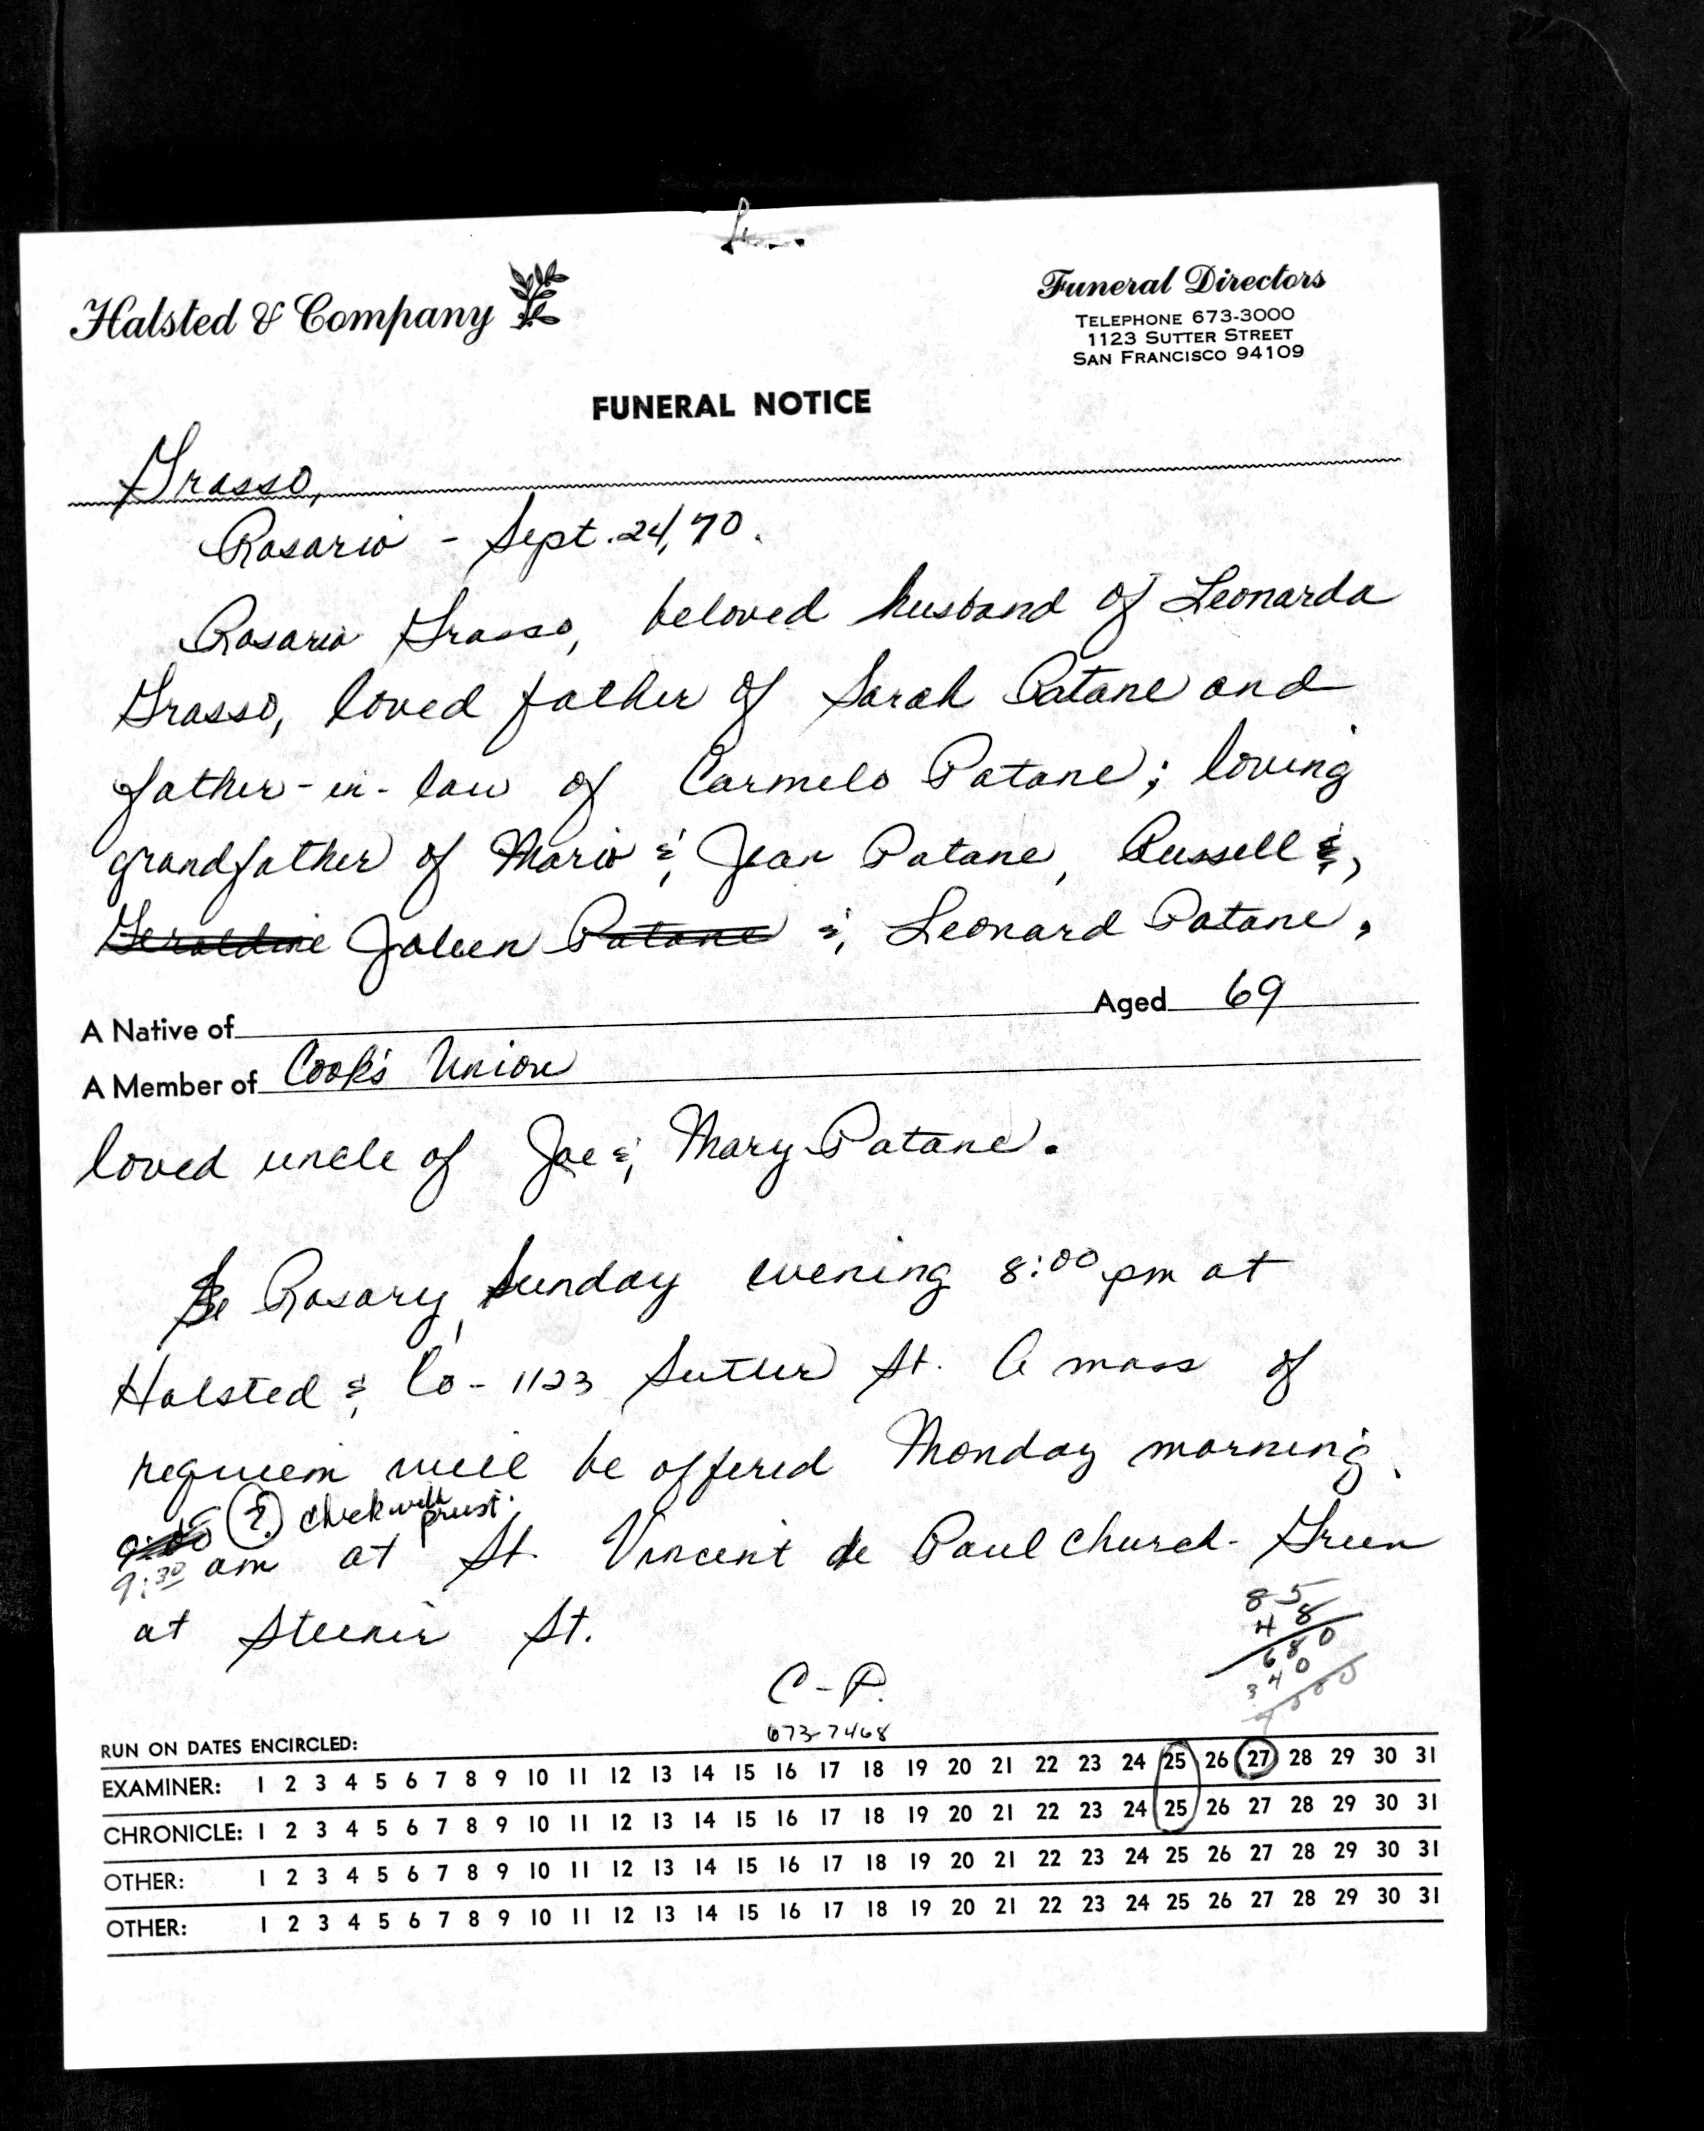 Halsted & Company
Funeral Directors
TELEPHONE 673-3000
1123 SUTTER STREET
SAN FRANCISCO 94109
FUNERAL NOTICE
Grasso,
Rosario - Sept. 24, 70.
Rosario Grasso, beloved husband of Leonarda
Grasso, loved father of Sarah Patane and
father-in-law of Carmelo Patane; loving
grandfather of Mario & Jean Patane, Russell &,
Geraldine Joleen Patane & Leonard Patane.
A Native of Aged 69
A Member of Cook's Union
loved uncle of Joe & Mary Patane.
Rosary, Sunday evening 8:00 pm at
Halsted & Co - 1123 Sutter St. A mass of
requiem will be offered Monday morning
(?) check with priest.
9:30 am at St. Vincent de Paul Church - Green
at Steiner St.
85
48
680
340
C-P.
673-7468
RUN ON DATES ENCIRCLED:
EXAMINER: 1 2 3 4 5 6 7 8 9 10 11 12 13 14 15 16 17 18 19 20 21 22 23 24 25 26 27 28 29 30 31
CHRONICLE: 1 2 3 4 5 6 7 8 9 10 11 12 13 14 15 16 17 18 19 20 21 22 23 24 25 26 27 28 29 30 31
OTHER: 1 2 3 4 5 6 7 8 9 10 11 12 13 14 15 16 17 18 19 20 21 22 23 24 25 26 27 28 29 30 31
OTHER: 1 2 3 4 5 6 7 8 9 10 11 12 13 14 15 16 17 18 19 20 21 22 23 24 25 26 27 28 29 30 31